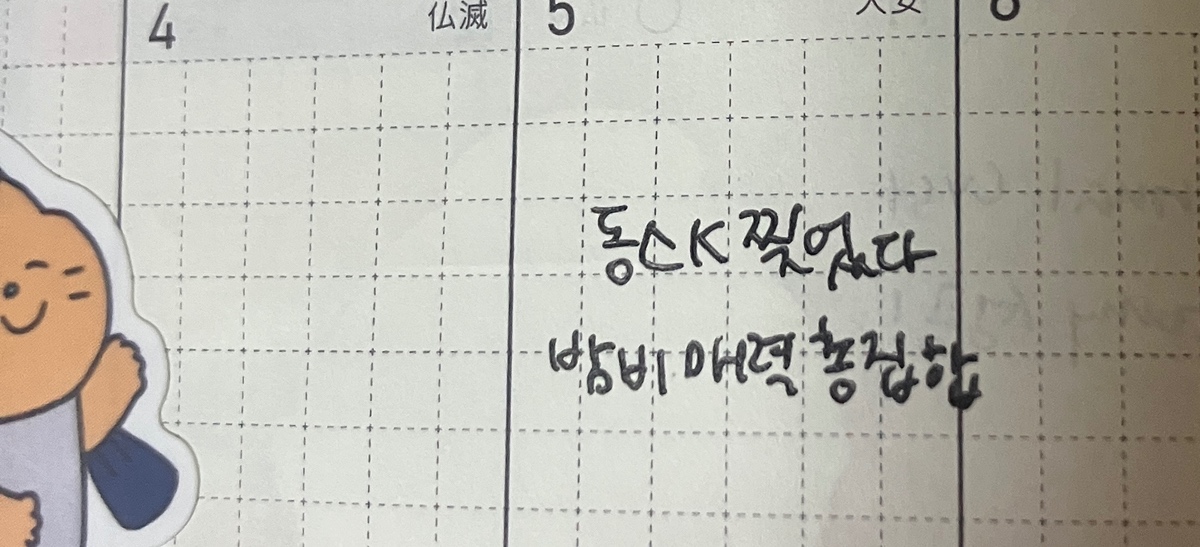 4 仏滅 5
동스K 찢었다
밤비 매력 총집합